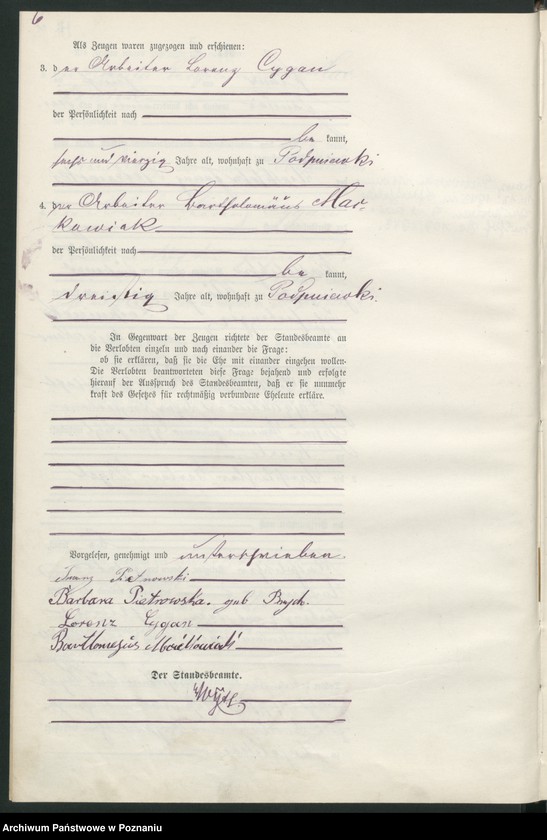 6
Als Zeugen waren zugezogen und erschienen:
3. der Arbeiter Lorenz Cygan
der Persönlichkeit nach
be kannt,
sechs und vierzig Jahre alt, wohnhaft zu Podpniewki
4. der Arbeiter Bartholomäus Mar-
kowiak
der Persönlichkeit nach
be kannt,
dreißig Jahre alt, wohnhaft zu Podpniewki.
In Gegenwart der Zeugen richtete der Standesbeamte an
die Verlobten einzeln und nach einander die Frage:
ob sie erklären, daß sie die Ehe mit einander eingehen wollen.
Die Verlobten beantworteten diese Frage bejahend und erfolgte
hierauf der Ausspruch des Standesbeamten, daß er sie nunmehr
kraft des Gesetzes für rechtmäßig verbundene Eheleute erkläre.
Vorgelesen, genehmigt und unterschrieben
Barbara Pietrowska. geb Brych.
Lorenz Cygan
Der Standesbeamte.
Archiwum Państwowe w Poznaniu